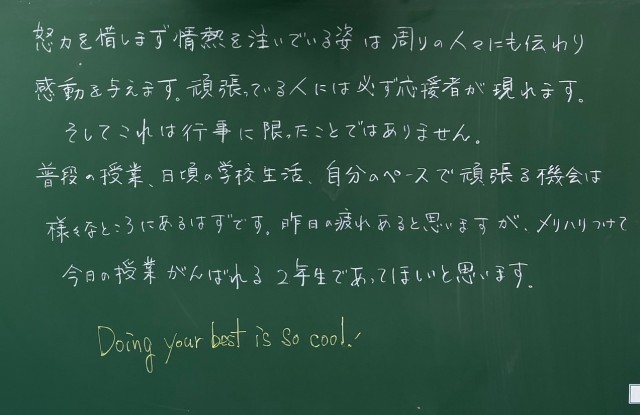 努力を惜しまず情熱を注いでいる姿は周りの人々にも伝わり
感動を与えます。頑張っている人には必ず応援者が現れます。
そしてこれは行事に限ったことではありません。
普段の授業、日頃の学校生活、自分のペースで頑張る機会は
様々なところにあるはずです。昨日の疲れあると思いますが、メリハリつけて
今日の授業がんばれる2年生であってほしいと思います。
Doing your best is so cool!